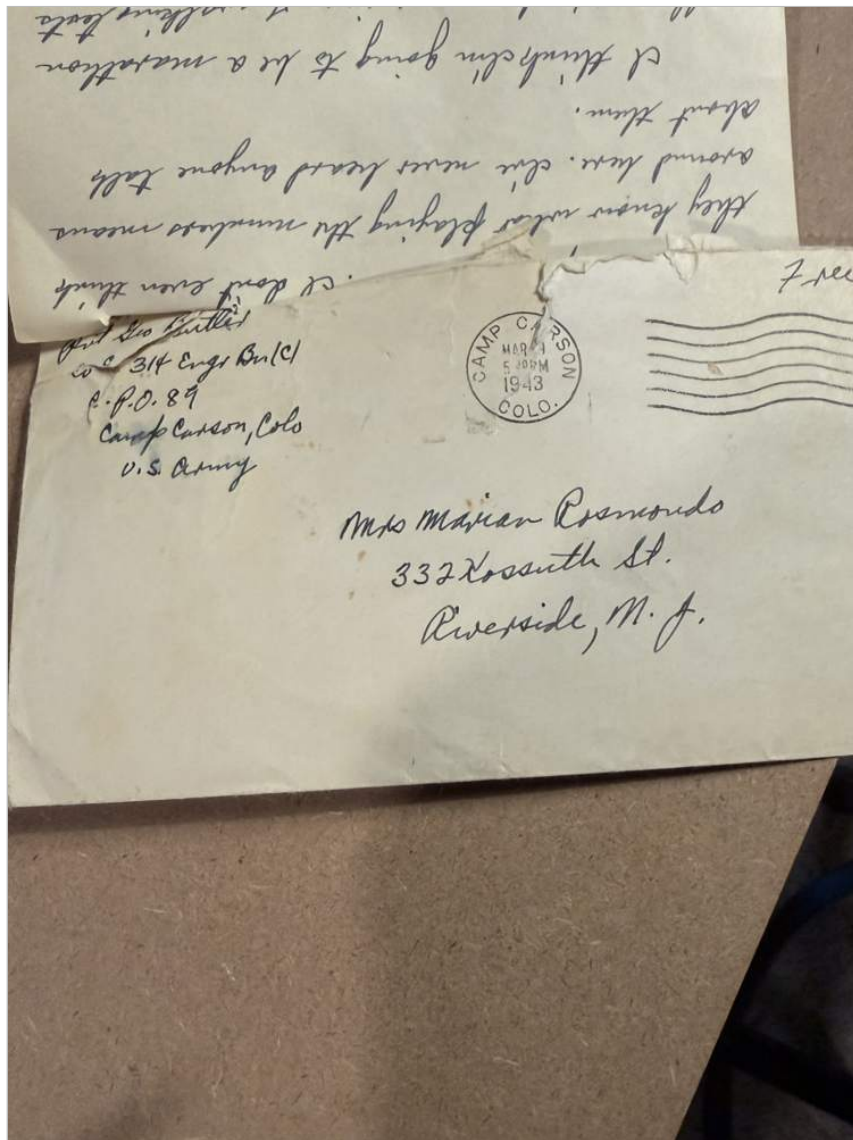 I dont even think
they know what playing the numbers means
around here. I've never heard anyone talk
about them.
I think I'm going to be a marathon
walking
Free
Pvt Geo Butler
Co 314 Engr Bn (C)
A.P.O. 89
Camp Carson, Colo
U.S. Army
CAMP CARSON
MAR
PM
1943
COLO.
Mrs Marian Rosmondo
332 Kossuth St.
Riverside, N. J.